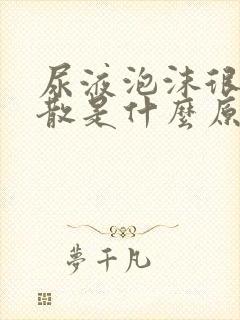 尿液泡沫很
散是什麼原
夢千凡